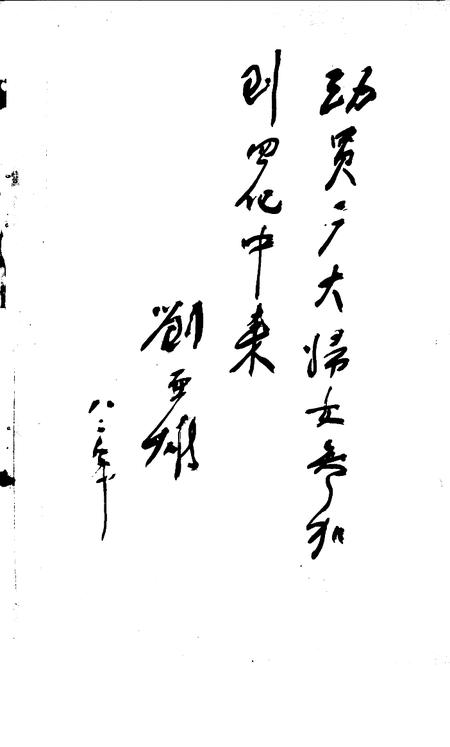 动員广大婦女参加
到四化中来
劉亚雄
八二年